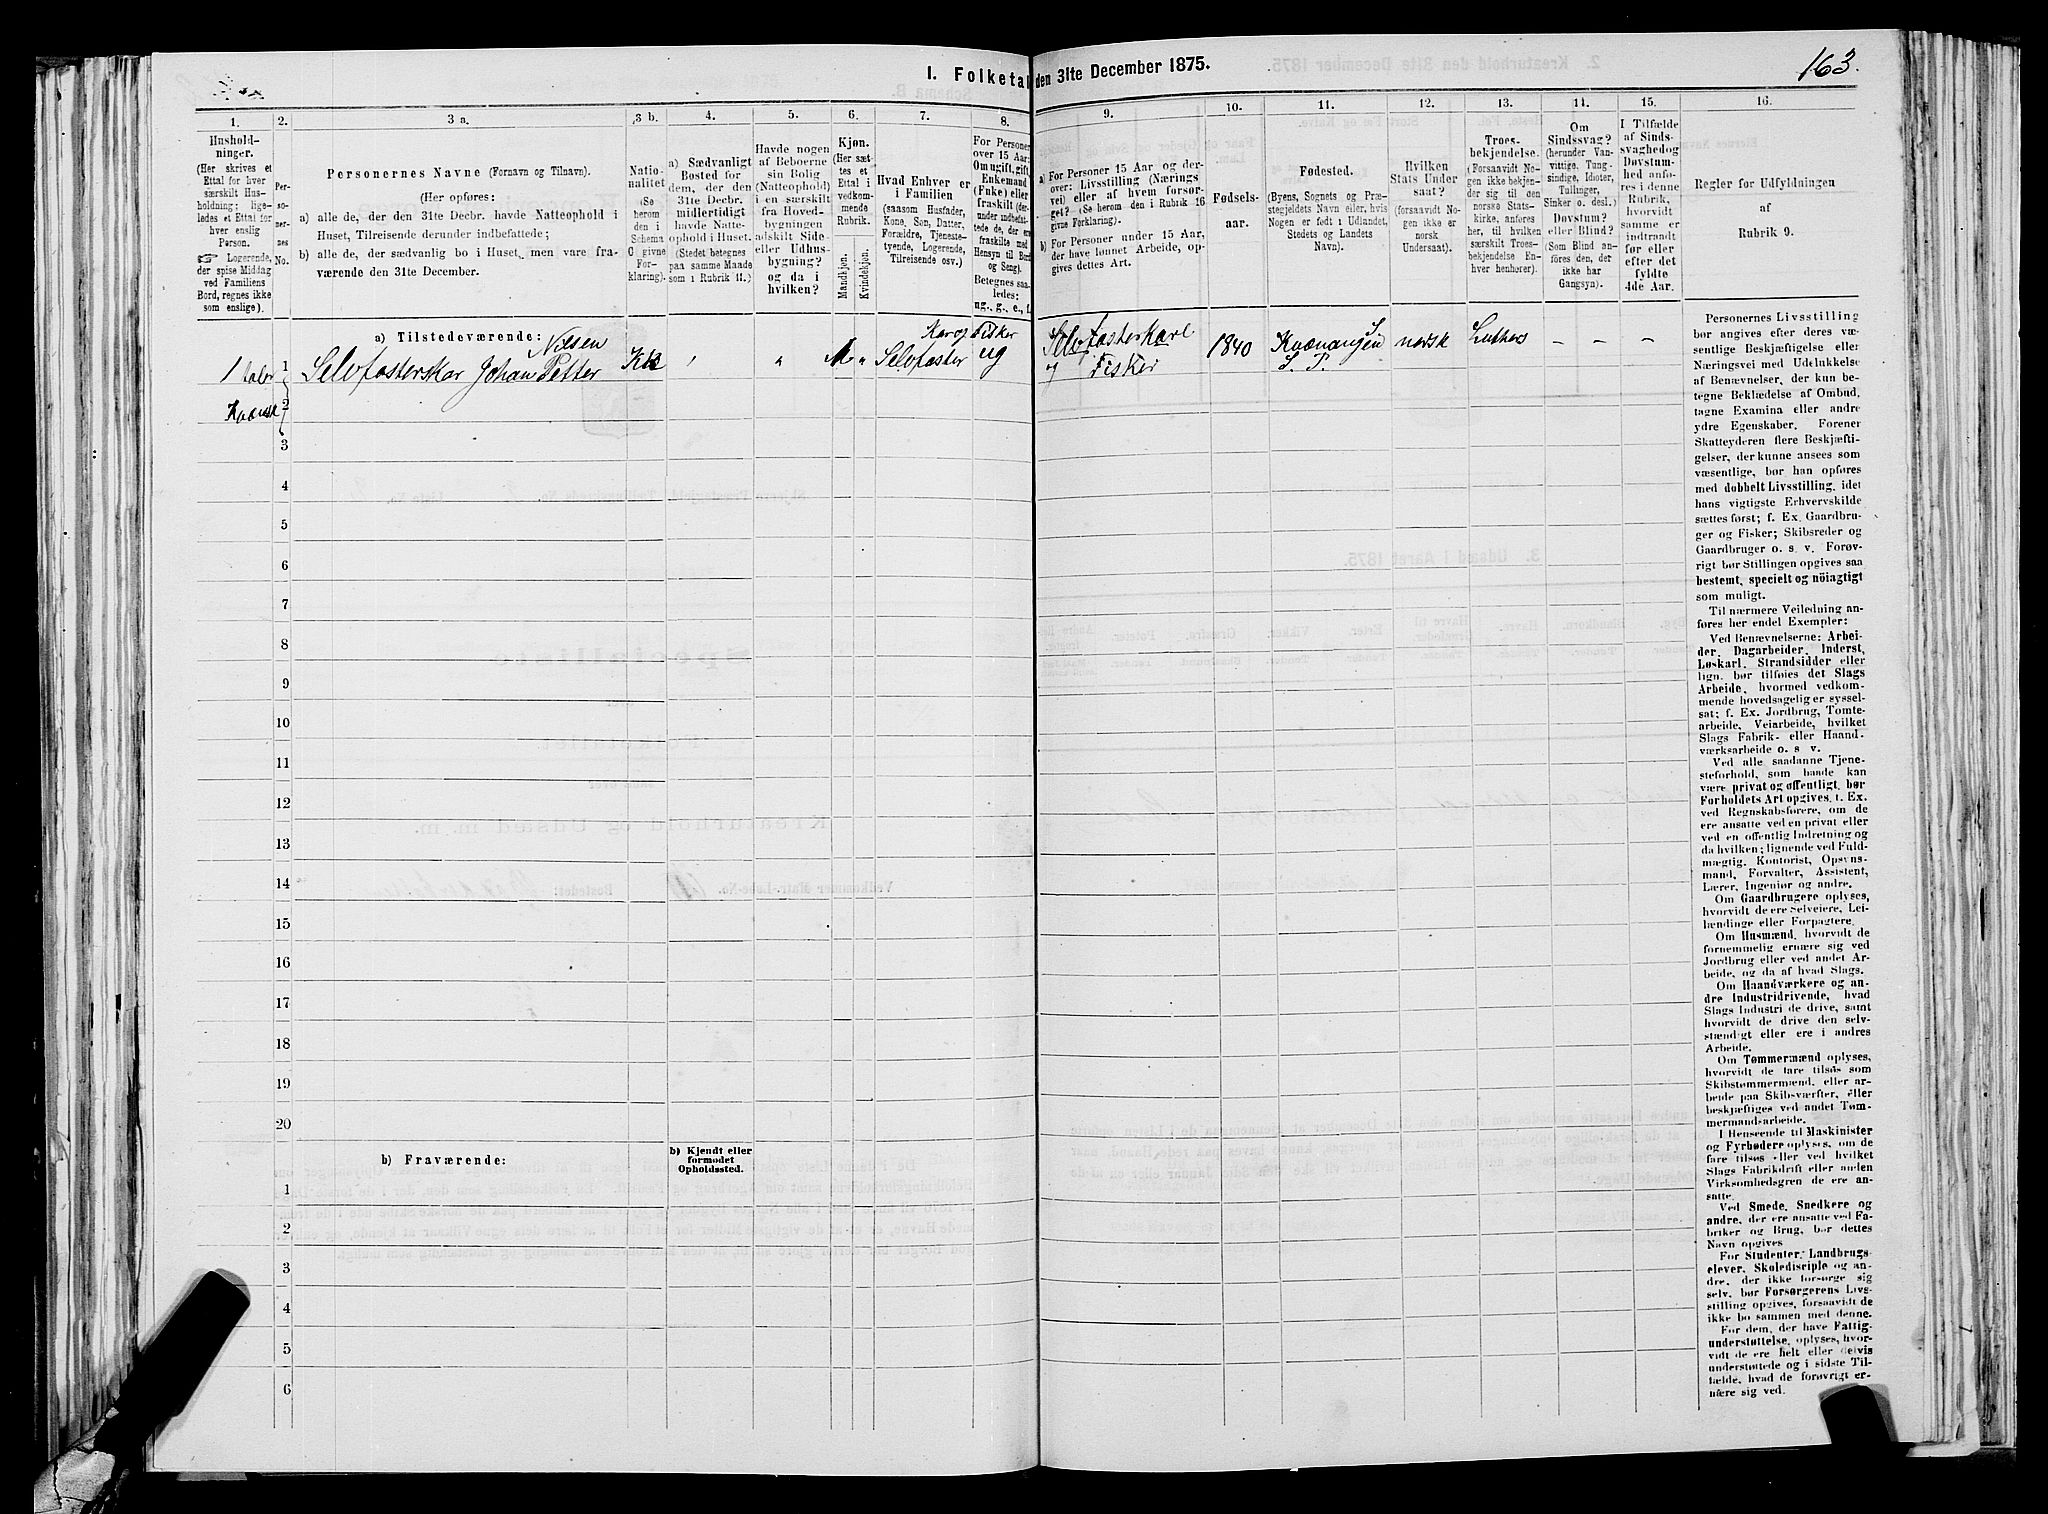 I. Folketal den 31te December 1875.
163.
1.
Hushold-
ninger.
(Her skrives et
Ettal for hver
særskilt Hus-
holdning; lige-
ledes et Ettal for
hver enslig
Person.
☞ Logerende,
der spise Middag
ved Familiens
Bord, regnes ikke
som enslige).
2.
Per-
so-
ner-
nes
No.
3 a.
Personernes Navne (Fornavn og Tilnavn).
(Her opføres:
a) alle de, der den 31te Decbr. havde Natteophold i
Huset, Tilreisende derunder indbefattede;
b) alle de, der sædvanlig bo i Huset, men vare fra-
værende den 31te December.
3 b.
Natio-
nalitet
(Se
herom
den i
Schema
C givne
For-
klaring).
4.
a) Sædvanligt
Bosted for
dem, der den
31te Decbr.
midlertidigt
havde Natte-
ophold i Huset.
(Stedet betegnes
paa samme Maade
som i Rubrik 11.)
5.
Havde nogen
af Beboerne
sin Bolig
(Natteophold)
i en særskilt
fra Hoved-
bygningen
adskilt Side-
eller Udhus-
bygning?
og da i
hvilken?
6.
Kjøn.
(Her sæt-
tes et
Ettal i
vedkom-
mende
Rubrik.
Mandkjøn.
Kvindekjøn.
7.
Hvad Enhver er
i Familien
(saasom Husfader,
Kone, Søn, Datter,
Forældre, Tjeneste-
tyende, Logerende,
Tilreisende osv.)
8.
For Personer
over 15 Aar:
Om ugift, gift,
Enkemand
(Enke) eller
fraskilt (der-
under indbefat-
tede de, der ere
fraskilte med
Hensyn til Bord
og Seng).
Betegnes saa-
ledes:
ug., g., e., f.
9.
a) For Personer 15 Aar og der-
over: Livsstilling (Nærings-
vei) eller af hvem forsør-
get? (Se herom den i Rubrik 16
givne Forklaring).
b) For Personer under 15 Aar,
der have lønnet Arbeide, op-
gives dettes Art.
10.
Fødsels-
aar.
11.
Fødested.
(Byens, Sognets og Præ-
stegjeldets Navn eller, hvis
Nogen er født i Udlandet,
Stedets og Landets
Navn).
12.
Hvilken
Stats Under
saat?
(forsaavidt No-
gen ikke er
norsk
Undersaat).
13.
Troes-
bekjendelse.
(Forsaavidt No-
gen ikke bekjen-
der sig til den
norske Stats-
kirke, anføres
her, til hvilken
særskilt Troes-
bekjendelse En-
hver henhører).
14.
Om
Sindssvag?
(herunder Van-
vittige, Tung-
sindige, Idioter,
Tullinger,
Sinker o. desl.)
Døvstum?
eller Blind?
(Som Blind an-
føres den, der
ikke har
Gangsyn).
15.
I Tilfælde
af Sinds-
svaghed og
Døvstum-
hed anfø-
res i denne
Rubrik,
hvorvidt
samme er
indtraadt
før eller
efter det
fyldte
4de Aar.
16.
Regler for Udfyldningen
af
Rubrik 9.
a) Tilstedeværende:
Nilsen
Kar og Fisker
1 taler
1
Selvfosterskar Johan Petter
" Selvfoster
ug
Selvfosterkarl
og Fisker
1840
Kvænangen
S. P.
norsk
Luthers
– – –
Kvænsk
2
3
4
5
6
7
8
9
10
11
12
13
14
15
16
17
18
19
20
b) Fraværende:
b) Kjendt eller
formodet
Opholdssted.
1
2
3
4
5
6
Personernes Livsstilling
bør angives efter deres væ-
sentlige Beskjæftigelse eller
Næringsvei med Udelukkelse
af Benævnelser, der kun be-
tegne Beklædelse af Ombud,
tagne Examina eller andre
ydre Egenskaber. Forener
Skatteyderen flere Beskjæfti-
gelser, der kunne ansees som
væsentlige, bør han opføres
med dobbelt Livsstilling, idet
hans vigtigste Erhvervskilde
sættes først; f. Ex. Gaardbru-
ger og Fisker; Skibsreder og
Gaardbruger o. s. v. Forøv-
rigt bør Stillingen opgives saa
bestemt, specielt og nöiagtigt
som muligt.
Til nærmere Veiledning an-
føres her endel Exempler:
Ved Benævnelserne: Arbei-
der, Dagarbeider, Inderst,
Løskarl, Strandsidder eller
lign. bør tilføies det Slags
Arbeide, hvormed vedkom-
mende hovedsagelig er syssel-
sat; f. Ex. Jordbrug, Tomte-
arbeide, Veiarbeide, hvilket
Slags Fabrik- eller Haand-
værksarbeide o. s. v.
Ved alle saadanne Tjene-
steforhold, som baade kan
være privat og offentligt, bør
Forholdets Art opgives, t. Ex.
ved Regnskabsførere, om de
ere ansatte ved en privat eller
ved en offentlig Indretning og
da hvilken; lignende ved Fuld-
mægtig, Kontorist, Opsyns-
mand, Forvalter, Assistent,
Lærer, Ingeniør og andre.
Om Gaardbrugere oplyses,
hvorvidt de ere Selveiere, Lei-
lændinge eller Forpagtere.
Om Husmænd, hvorvidt de
fornemmelig ernære sig ved
Jordbrug eller ved andet Ar-
beide, og da af hvad Slags.
Om Haandværkere og an-
dre Industridrivende, hvad
Slags Industri de drive, samt
hvorvidt de drive den selv-
stændigt eller ere i andres
Arbeide.
Om Tømmermænd oplyses,
hvorvidt de fare tilsøs som
Skibstømmermænd, eller ar-
beide paa Skibsværfter, eller
beskjæftiges ved andet Tøm-
mermandsarbeide.
I Henseende til Maskinister
og Fyrbødere oplyses, om de
fare tilsøs eller ved hvilket
Slags Fabrikdrift eller anden
Virksomhedsgren de ere an-
satte.
Ved Smede, Snedkere og
andre, der ere ansatte ved Fa-
briker og Brug, bør dettes
Navn opgives
For Studenter, Landbrugs-
elever, Skoledisciple og an-
dre, der ikke forsørge sig
selv, bør Forsørgerens Livs-
stilling opgives, forsaavidt de
ikke bo sammen med denne.
For dem, der have Fattig-
understøttelse, oplyses, hvor-
vidt de ere helt eller delvis
understøttede og i sidste Til-
fælde, hvad de forøvrigt er-
nære sig ved.